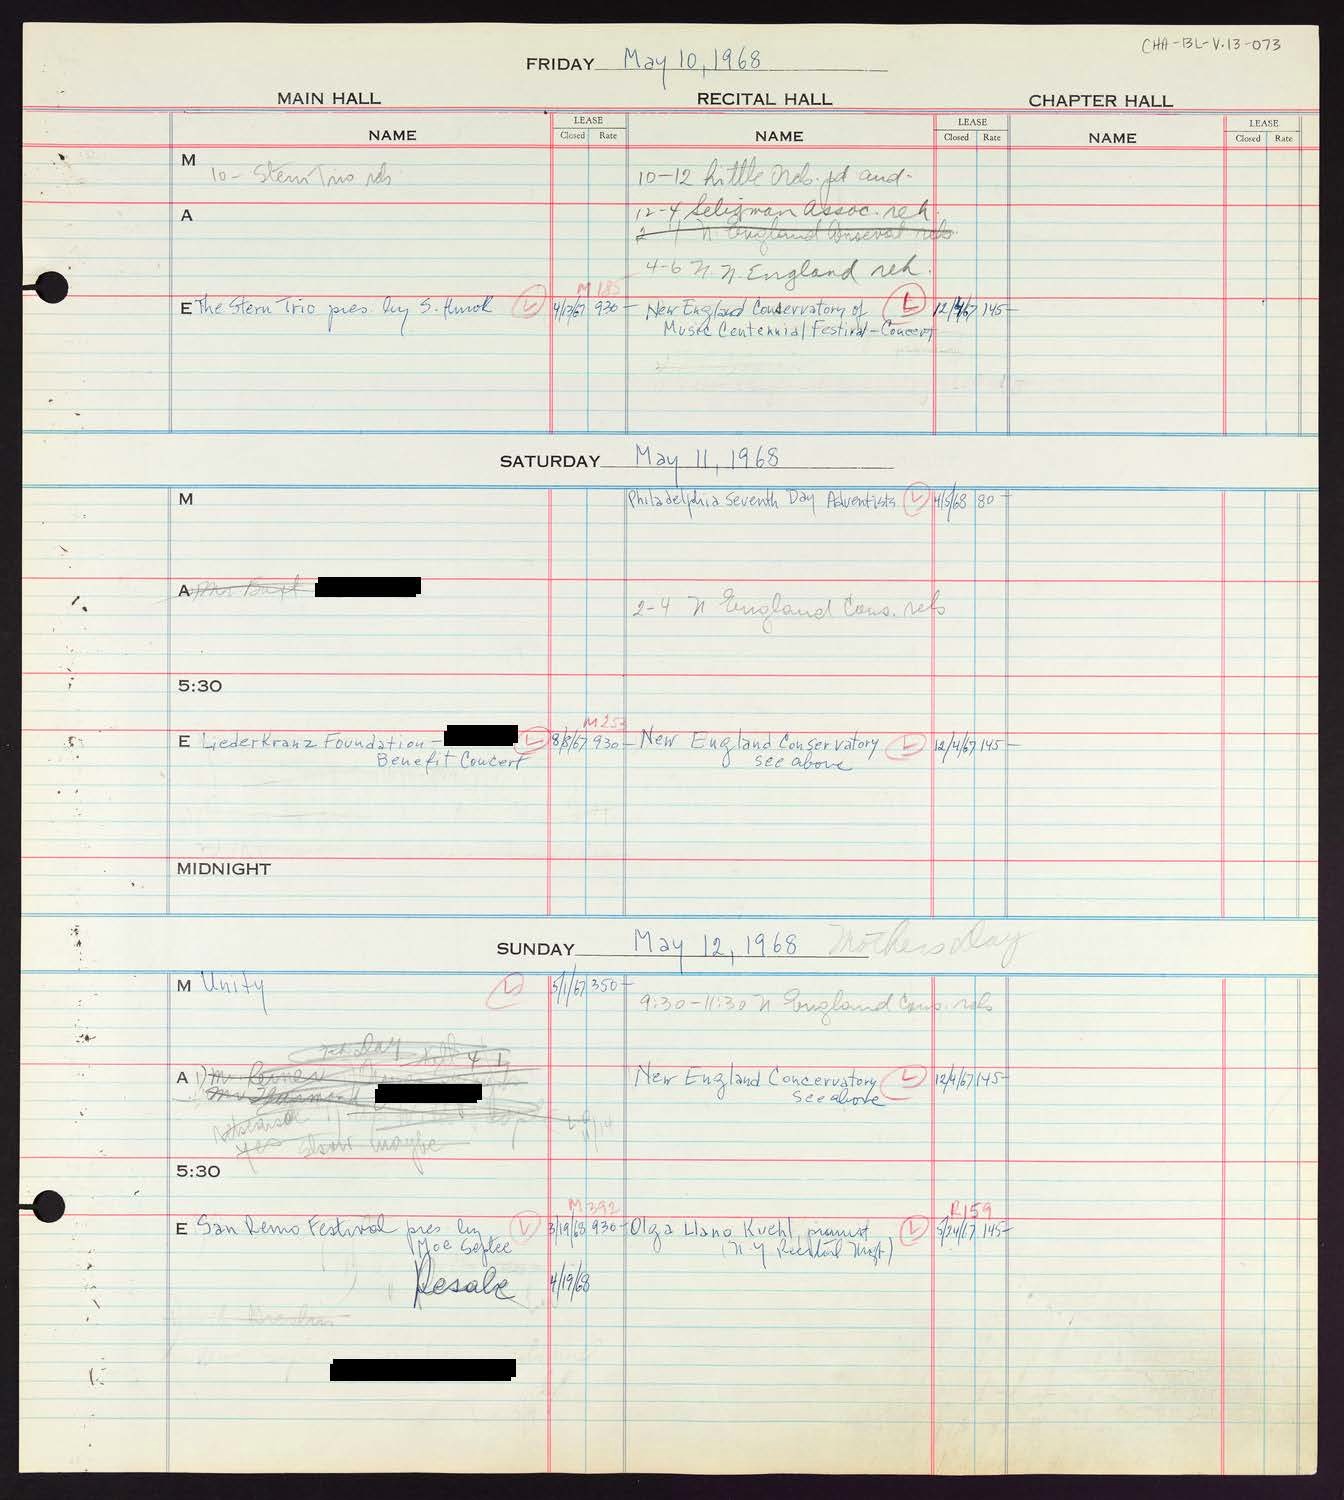 CHA-BL-V.13-073
FRIDAY May 10, 1968
MAIN HALL RECITAL HALL CHAPTER HALL
NAME LEASE Closed Rate NAME LEASE Closed Rate NAME LEASE Closed Rate
M 10- Stern Trio reh 10-12 Little Orch. aud-
A 12-4 Seligman Assoc. reh.
2-4 N England Conservat reh
4-6 N. England reh.
M 185
E The Stern Trio pres. by S. Hurok L 4/13/67 930- New England Conservatory of L 12/4/67 145-
Music Centennial Festival-Concert
SATURDAY May 11, 1968
M Philadelphia Seventh Day Adventists L 4/5/68 80-
A Mr
2-4 N England Cons. reh
5:30
M 253
E Liederkranz Foundation- L 8/8/67 930- New England Conservatory L 12/4/67 145-
Benefit Concert see above
MIDNIGHT
SUNDAY May 12, 1968 Mothers Day
M Unity L 5/1/67 350-
9:30-11:30 N England Cons. reh
A 1) New England Concervatory L 12/4/67 145-
see above
yes maybe
5:30
M 392 R159
E San Remo Festival pres by L 3/19/68 930- Olga Llano Kuehl, pianist L 5/24/67 145-
Moe Septee (N.Y Recital Mgt)
Resale 4/19/68